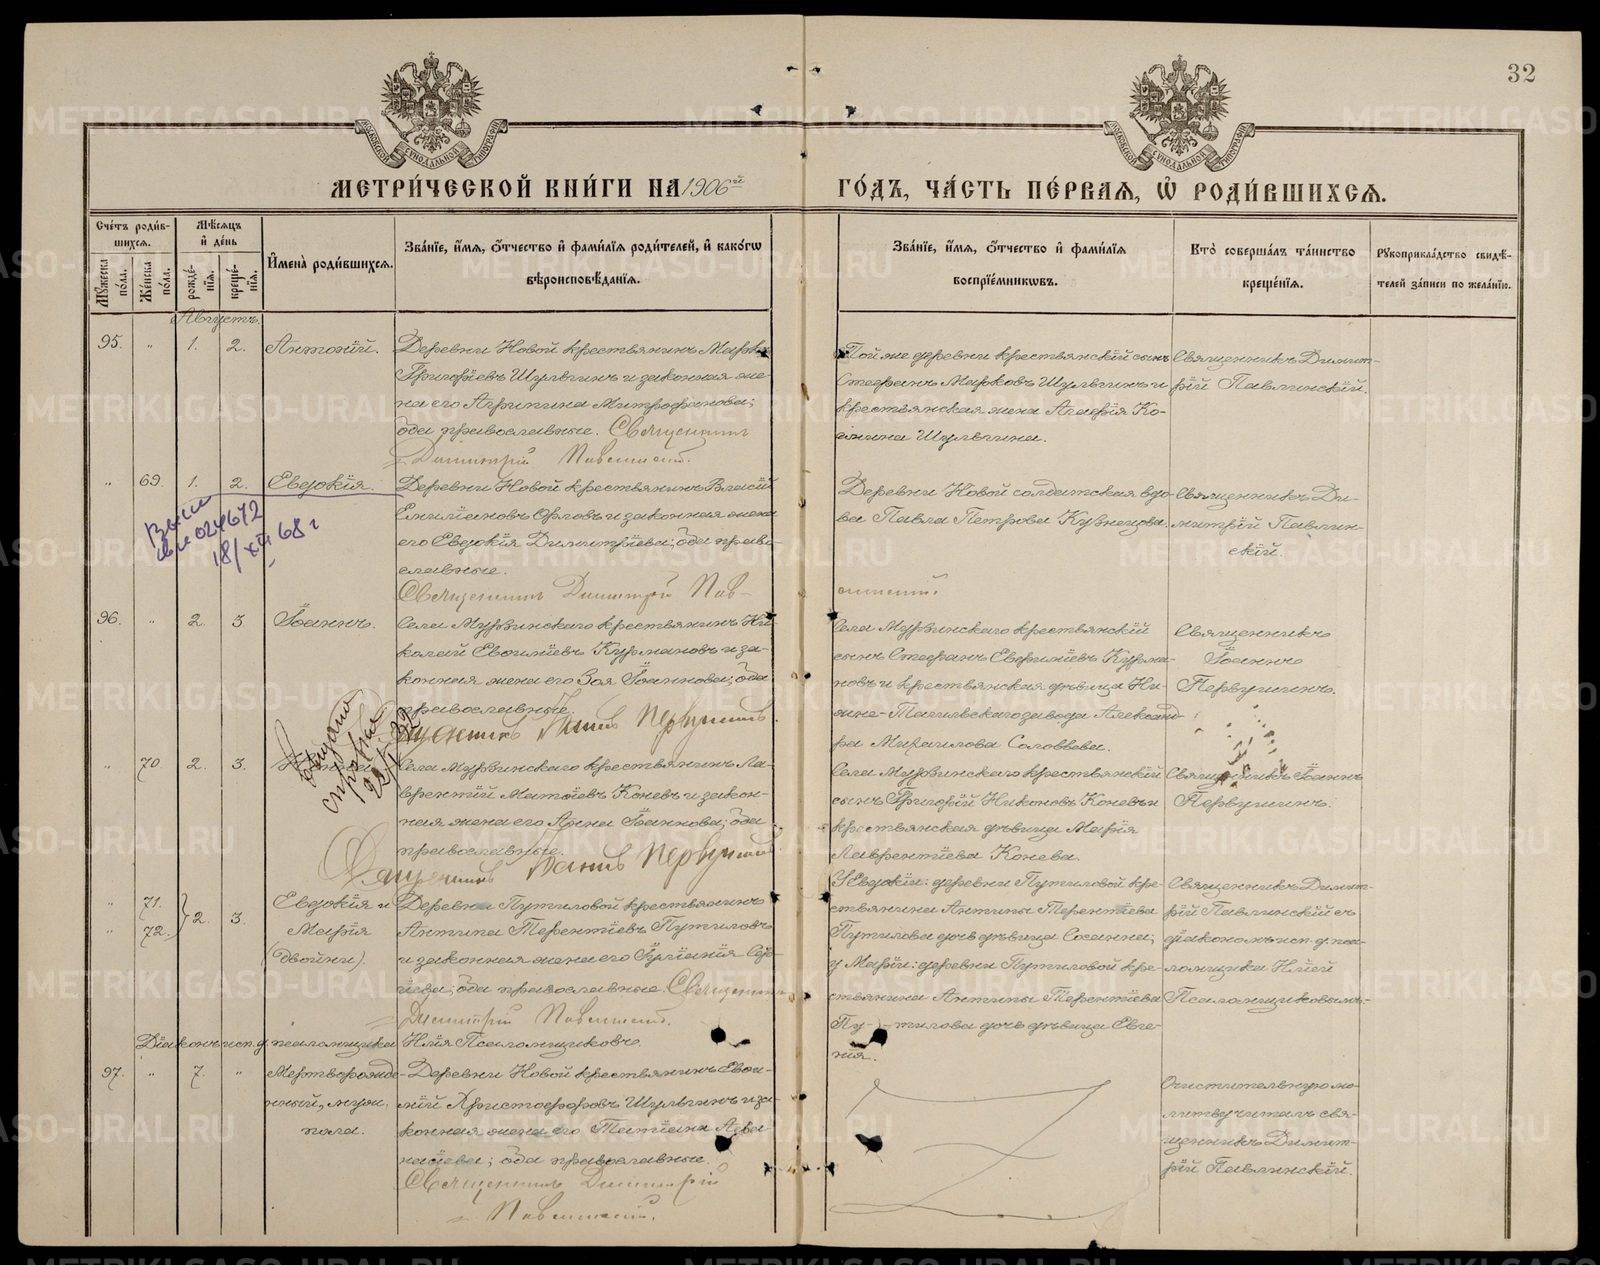 32
МОСКОВСКОЙ СУНОДАЛЬНОЙ ТИПОГРАФІИ
МОСКОВСКОЙ СУНОДАЛЬНОЙ ТИПОГРАФІИ
МЕТРИ́ЧЕСКОЙ КНИ́ГИ НА 1906й
ГО́ДЪ, ЧА́СТЬ ПЕ́РВАѦ, Ѡ҆ РОДИ́ВШИХСѦ.
Сче́тъ роди́в-
шихсѧ.
Мꙋ́жеска по́ла.
Же́нска по́ла.
Мѣ́сѧцъ
и҆ де́нь
рожде́-
нїѧ.
креще́-
нїѧ.
И҆мена̀ роди́вшихсѧ.
Зва́нїе, и҆́мѧ, ѻ҆́тчество и҆ фами́лїѧ роди́телей, и҆ како́гѡ
вѣроисповѣ́данїѧ.
Зва́нїе, и҆́мѧ, ѻ҆́тчество и҆ фами́лїѧ
воспрїе́мникѡвъ.
Кто̀ соверша́лъ та́инство
креще́нїѧ.
Рꙋкоприкла́дство свидѣ́-
телей за́писи по жела́нїю.
Августъ.
95. " 1. 2. Антоній.
Деревни Новой крестьянинъ Маркъ
Григоріевъ Шульгинъ и законная же-
на его Агрипина Митрофанова;
оба православные. Священникъ
Димитрій Павлинскій.
Той же деревни крестьянскій сынъ
Стефанъ Марковъ Шульгинъ и
крестьянская жена Агафія
Шульгина.
Священникъ Димит-
рій Павлинскій.
" 69. 1. 2. Евдокія.
Деревни Новой крестьянинъ Власій
Емиліановъ Орловъ и законная жена
его Евдокія Димитріева; оба право-
славные.
Священникъ Димитрій Пав-
линскій.
Деревни Новой солдатская вдо-
ва Павла Петрова Кузнецова.
Священникъ Ди-
митрій Павлин-
скій.
024672
18/XII 68 г
96. " 2. 3. Іоаннъ.
Села Мурзинскаго крестьянинъ Ни-
колай Евсиміевъ Курмановъ и за-
конная жена его Зоя Іоаннова; оба
православные.
Священникъ Іоаннъ Первушинъ.
Села Мурзинскаго крестьянскій
сынъ Стефанъ Курма-
новъ и крестьянская дѣвица Ни-
жне-Тагильскаго завода Александ-
ра Михаилова Соловьева.
Священникъ
Іоаннъ
Первушинъ.
Выдана
справка
" 70 2. 3.
Села Мурзинскаго крестьянинъ Ла-
врентій Матвіевъ Коневъ и закон-
ная жена его Анна Іоаннова; оба
православные.
Священникъ Іоаннъ Первушинъ
Села Мурзинскаго крестьянскій
сынъ Григорій Никоновъ Коневъ и
крестьянская дѣвица Марія
Лаврентіева Конева.
Священникъ Іоаннъ
Первушинъ.
" 71.
" 72. 2. 3. Евдокія и
Марія
(двойни).
Деревни Путиловой крестьянинъ
Антипа Терентіевъ Путиловъ
и законная жена его Іуліанія Сер-
гіева; оба православные. Священникъ
Димитрій Павлинскій.
Діаконъ исп. д. псаломщика Илія Псаломщиковъ.
У Евдокіи: деревни Путиловой кре-
стьянина Антипы Терентіева
Путилова дочь дѣвица Сосанна;
у Маріи: деревни Путиловой кре-
стьянина Антипы Терентіева
Пу-тилова дочь дѣвица Евге-
нія.
Священникъ Димит-
рій Павлинскій съ
діакономъ исп. д. пса-
ломщика Иліей
Псаломщиковымъ.
97. " 7. " Мертворожде-
нный, муж.
пола.
Деревни Новой крестьянинъ
Христофоровъ Шульгинъ и за-
конная жена его Татіана Аѳа-
насіева; оба православные.
Священникъ Димитрій
Павлинскій.
Очистительную мо-
литву читалъ свя-
щенникъ Димит-
рій Павлинскій.
METRIKI.GASO-URAL.RU